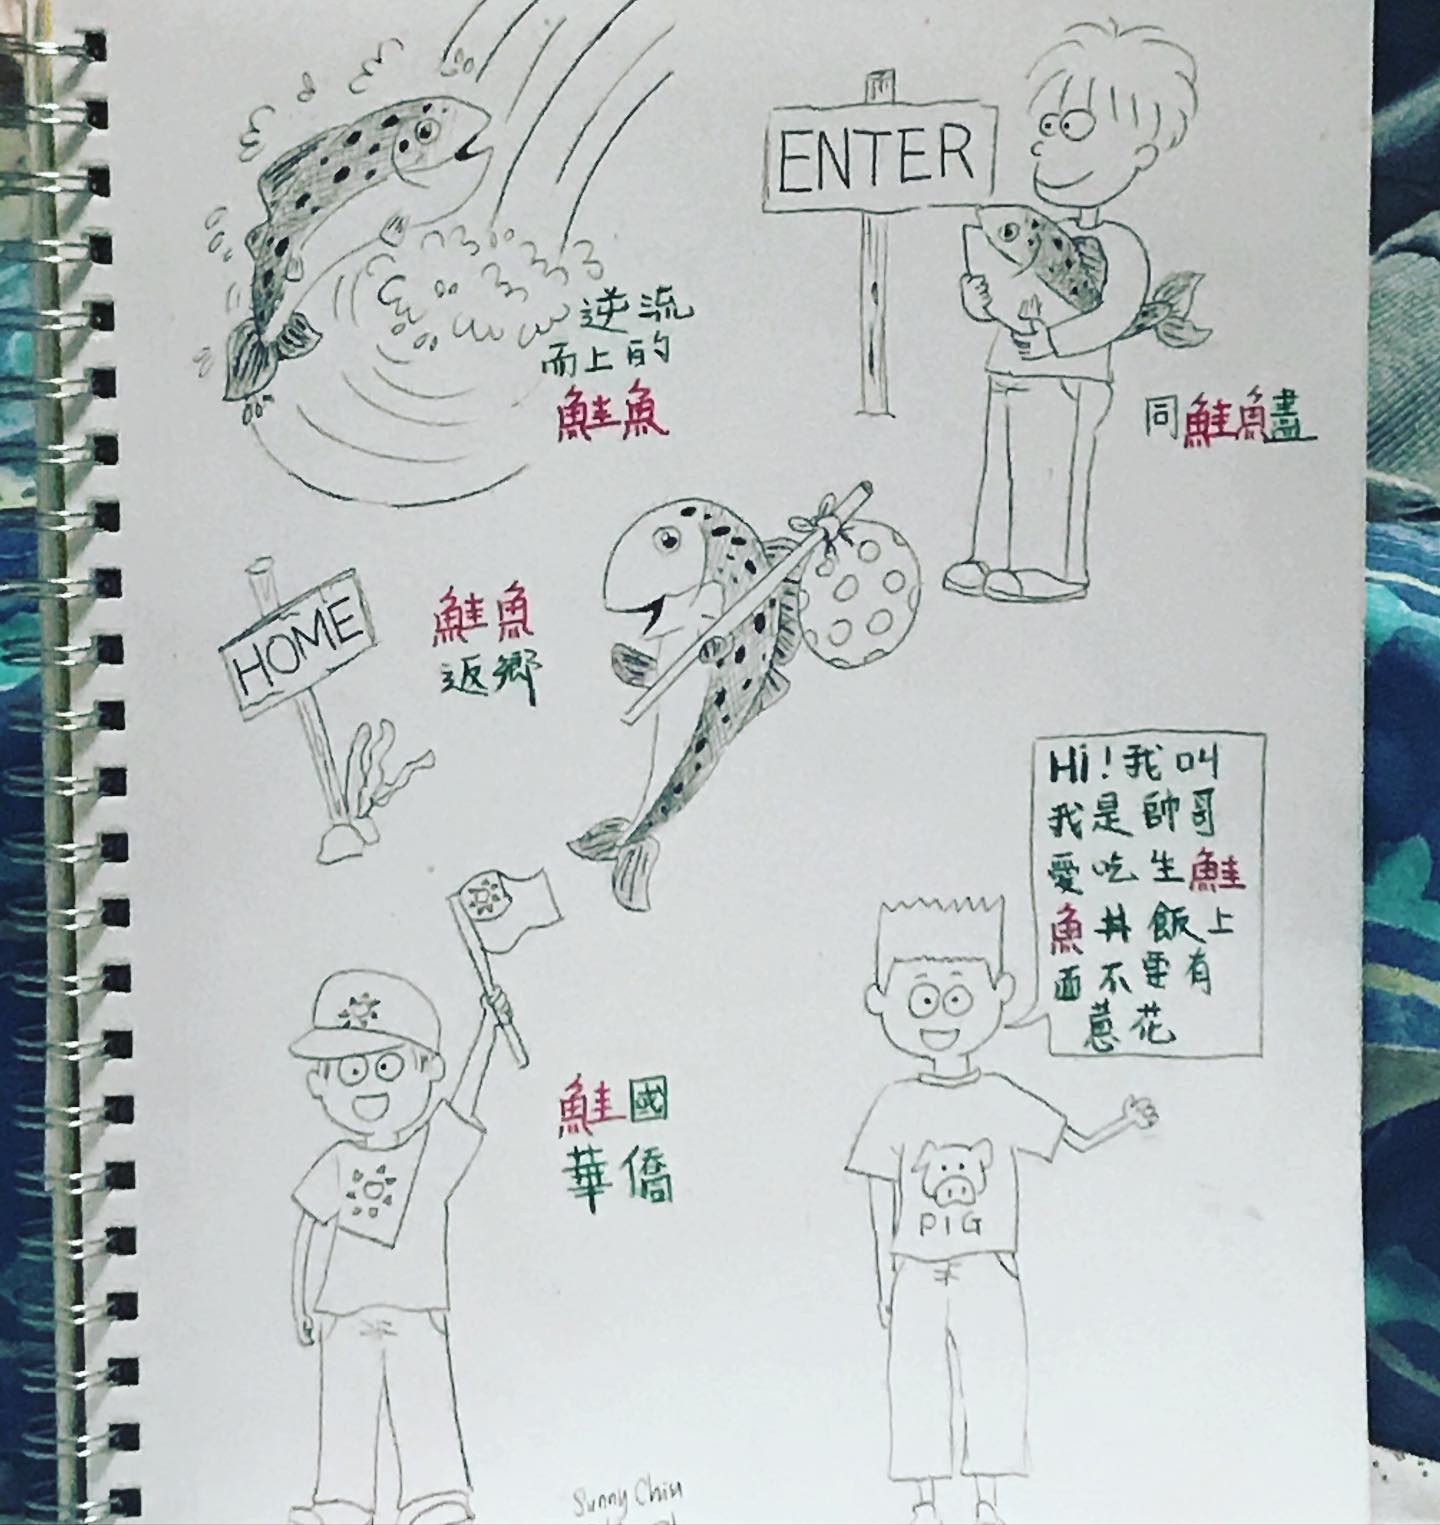 逆流
而上的
鮭魚
ENTER
同鮭魚盡
HOME
鮭魚
返鄉
Hi!我叫
我是帥哥
愛吃生鮭
魚丼飯上
面不要有
蔥花
鮭國
華僑
PIG
Sunny Chiu